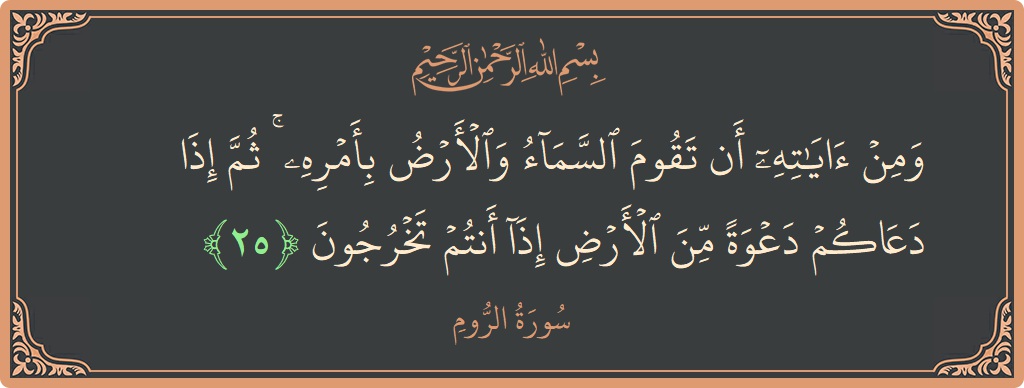 بِسْمِ اللَّهِ الرَّحْمَٰنِ الرَّحِيمِ
وَمِنْ ءَايَـٰتِهِۦٓ أَن تَقُومَ ٱلسَّمَآءُ وَٱلْأَرْضُ بِأَمْرِهِۦ ۚ ثُمَّ إِذَا
دَعَاكُمْ دَعْوَةً مِّنَ ٱلْأَرْضِ إِذَآ أَنتُمْ تَخْرُجُونَ ﴿٢٥﴾
سُورَةُ الرُّومِ